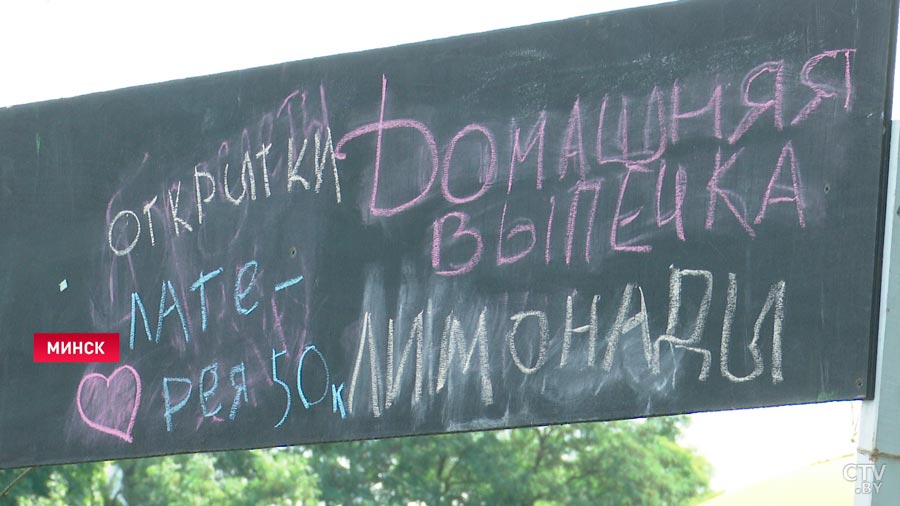 открытки
лате-
рея 50к
Домашняя
выпечка
лимонады
МИНСК
CTV
.BY